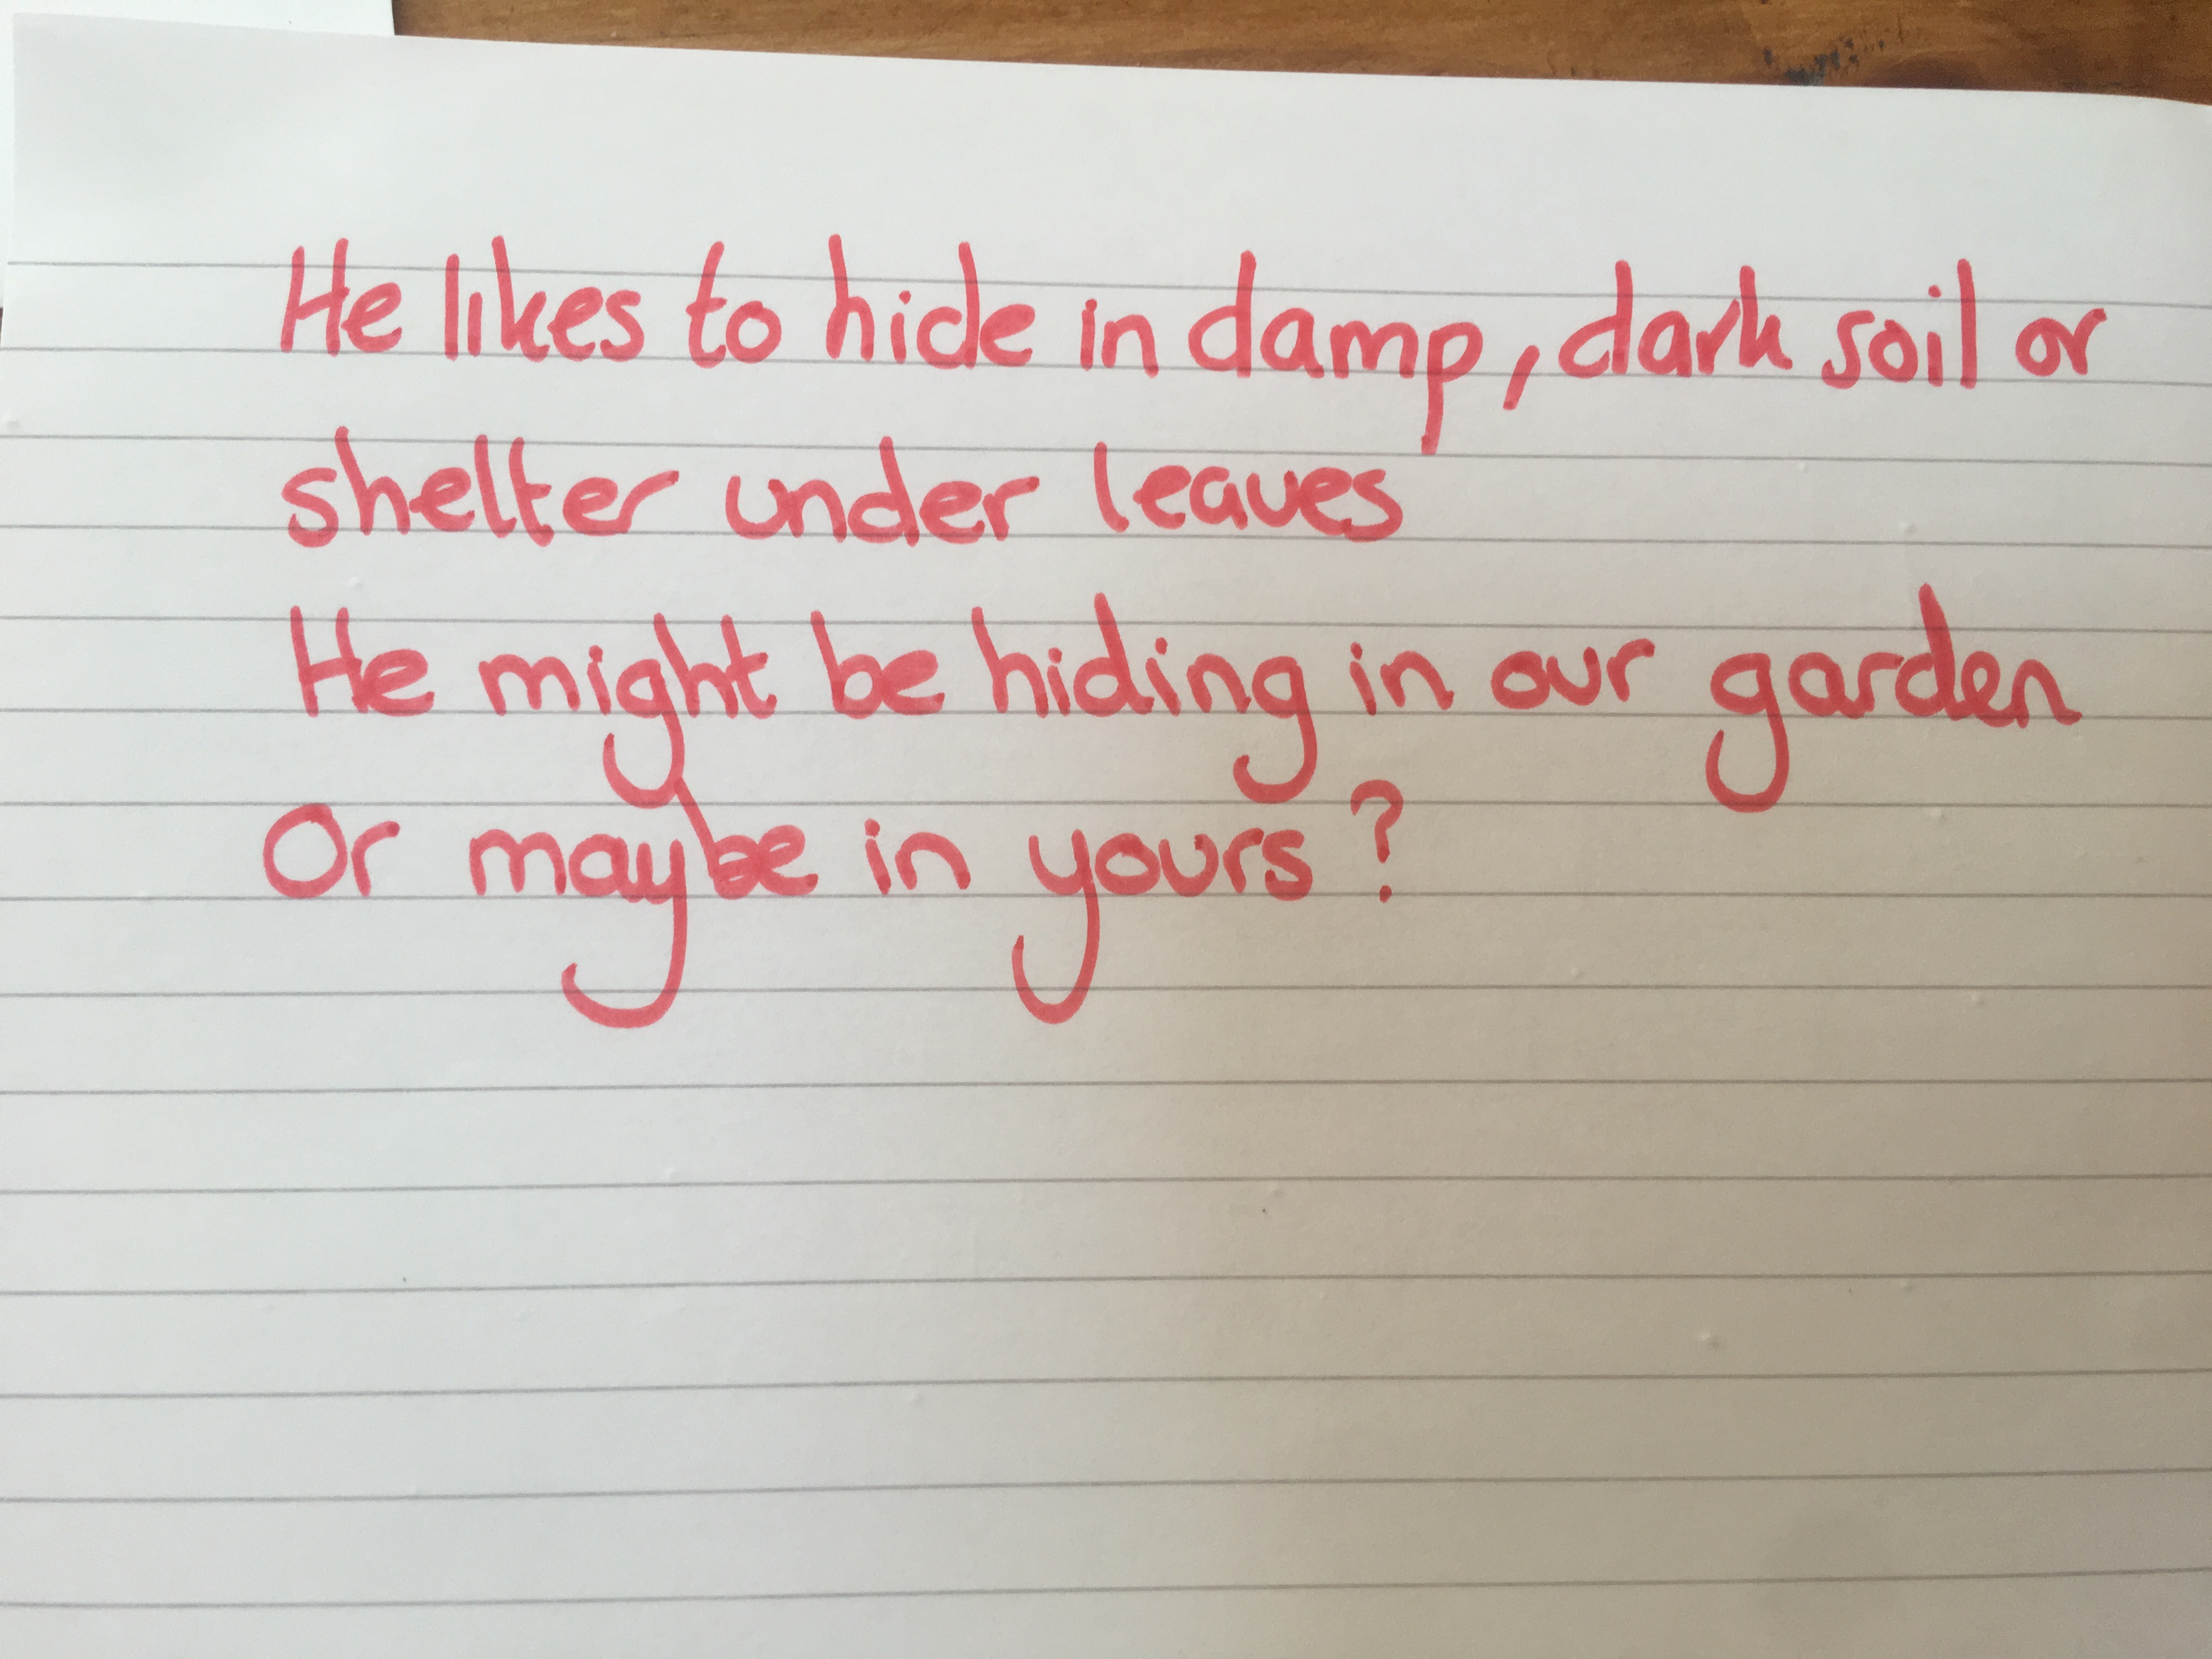 He likes to hide in damp, dark soil or
shelter under leaves
He might be hiding in our garden
Or maybe in yours?